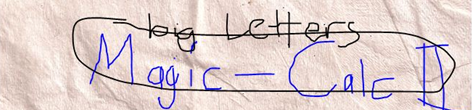 big Letters
Magic - Calc II